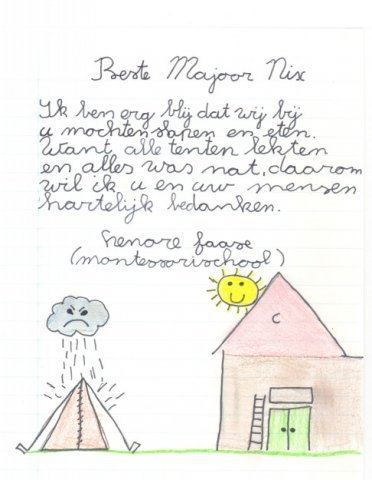 Beste Majoor Nix
Ik ben erg blij dat wij bij
u mochten slapen en eten.
Want alle tenten lekten
en alles was nat, daarom
wil ik u en uw mensen
hartelijk bedanken.
Lenore faase
(montessorischool)